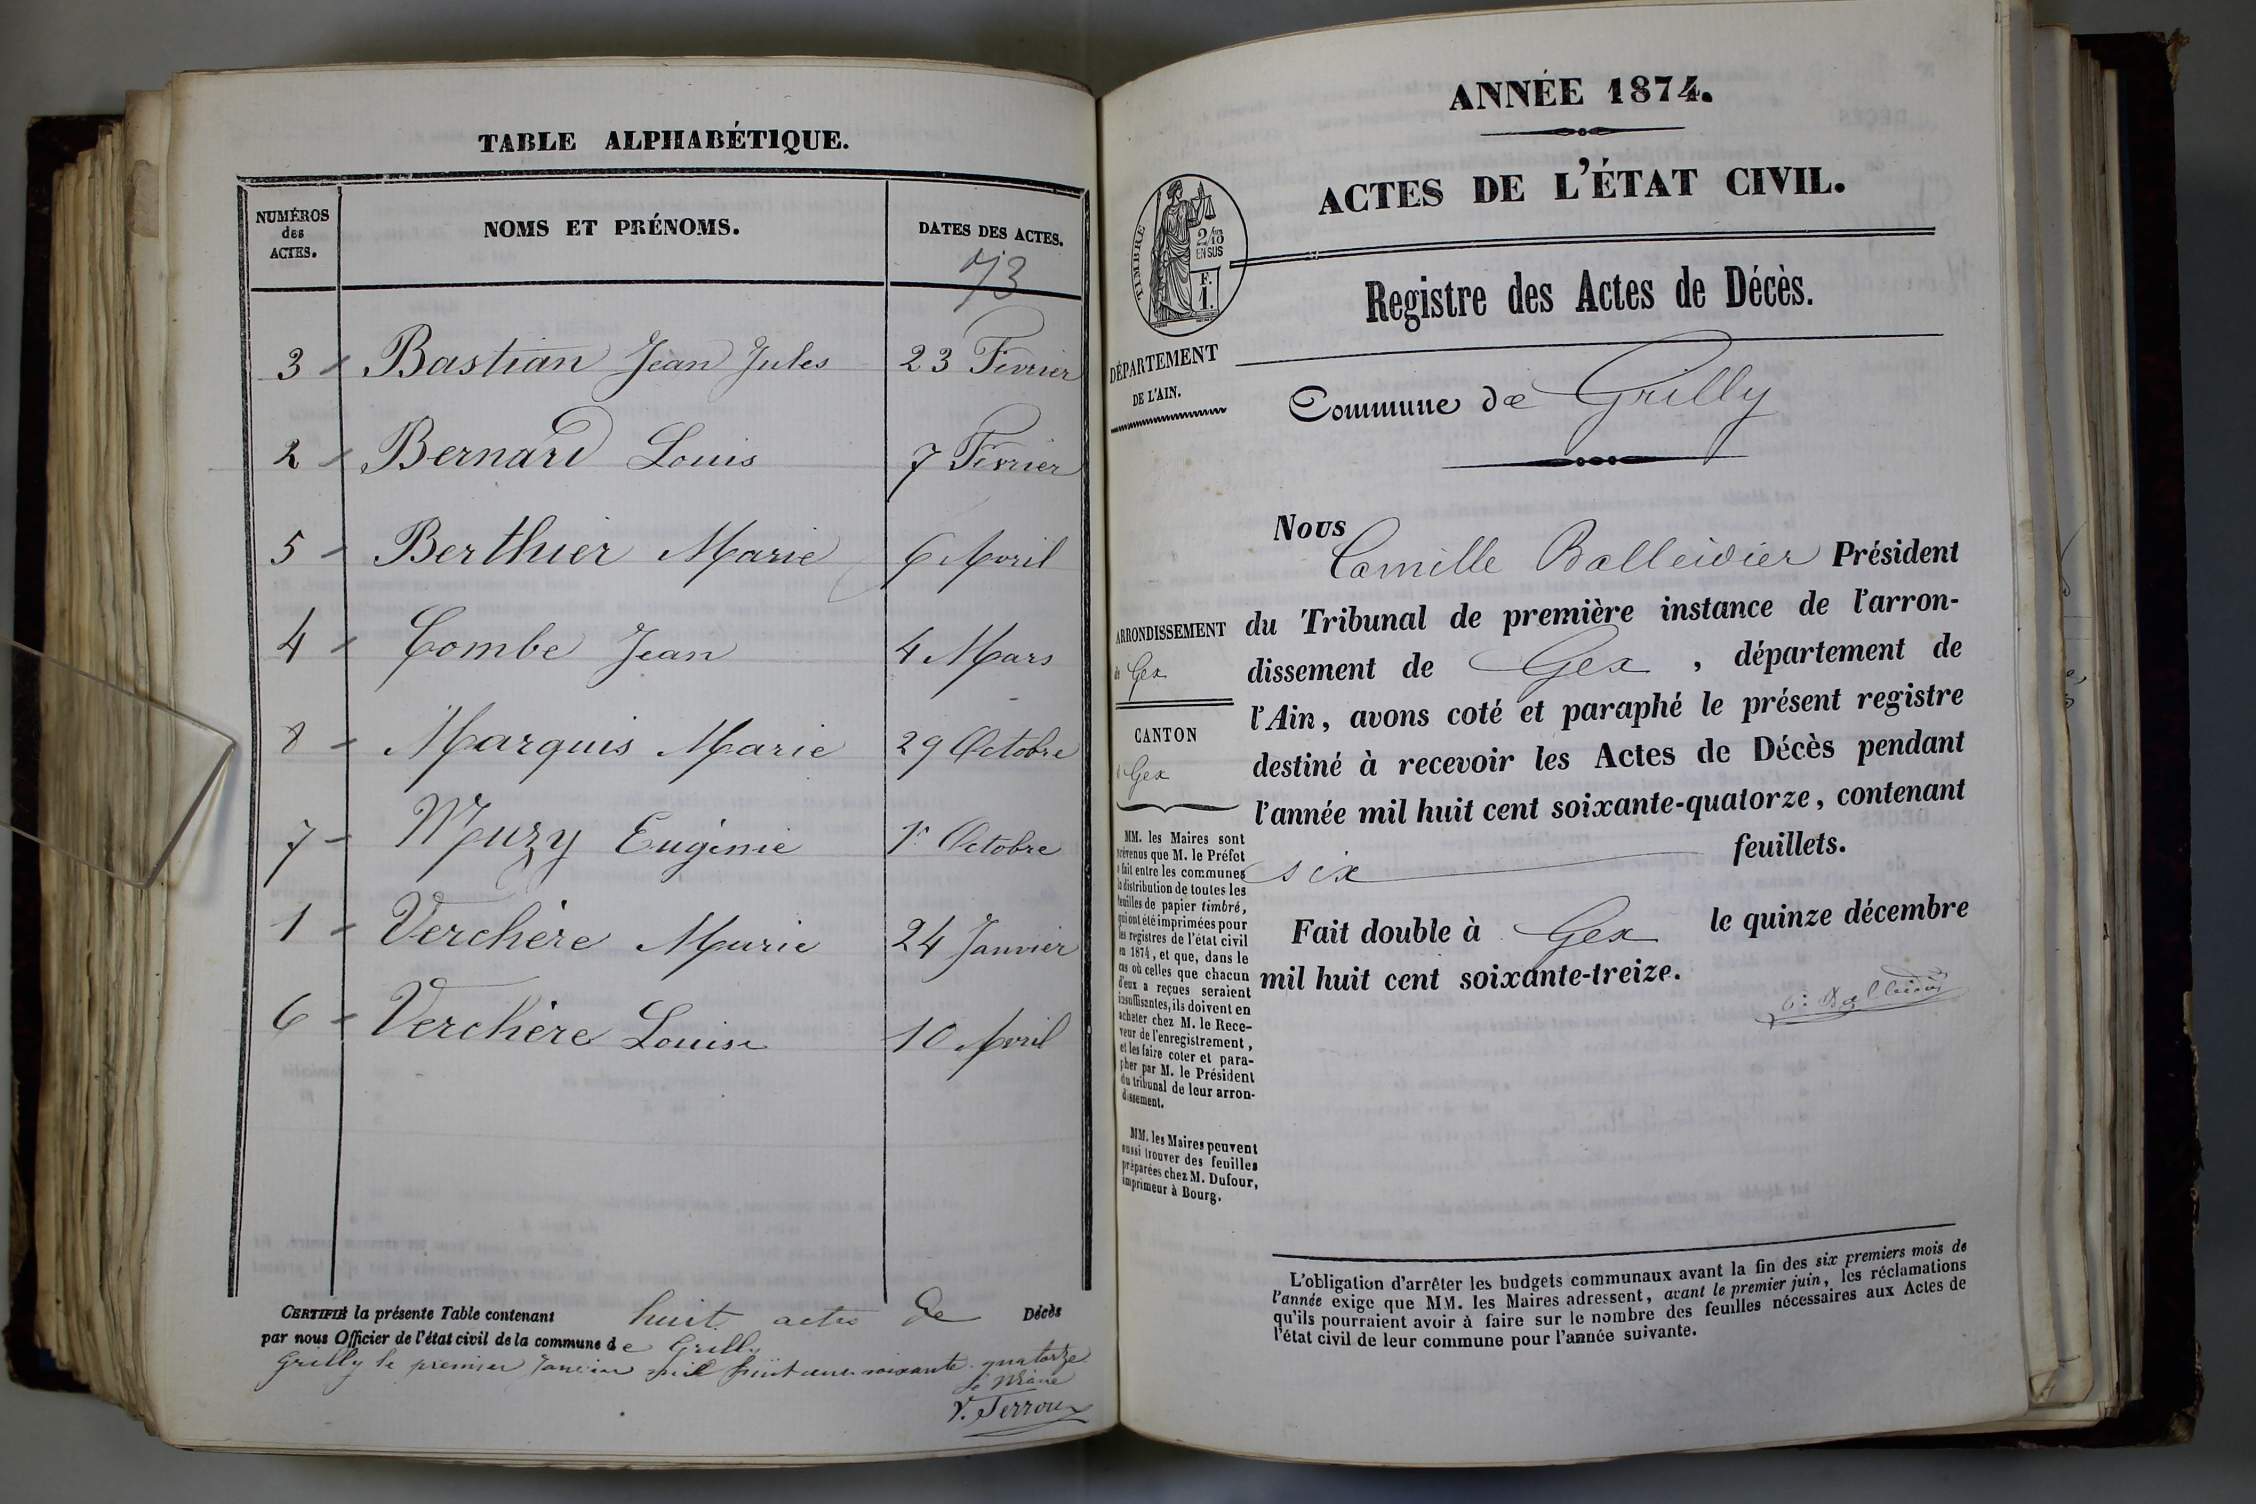 TABLE ALPHABÉTIQUE.
NUMÉROS des ACTES. NOMS ET PRÉNOMS. DATES DES ACTES.
73
3 Bastian Jean Jules 23 Février
2 Bernard Louis 7 Février
5 Berthier Marie 6 Avril
4 Combe Jean 4 Mars
8 Marquis Marie 29 Octobre
7 Muzy Eugénie 1r Octobre
1 Verchère Marie 24 Janvier
6 Verchère Louise 10 Avril
CERTIFIÉ la présente Table contenant huit actes de Décès
par nous Officier de l'état civil de la commune de Grilly
Grilly le premier Janvier mil huit cent soixante-quatorze
V. Terroux
ANNÉE 1874.
ACTES DE L'ÉTAT CIVIL.
TIMBRE
2/10
EN SUS
F.
1.
Registre des Actes de Décès.
DÉPARTEMENT
DE L'AIN.
Commune de Grilly
Nous
Camille Balleidier Président
du Tribunal de première instance de l'arron-
dissement de Gex, département de
l'Ain, avons coté et paraphé le présent registre
destiné à recevoir les Actes de Décès pendant
l'année mil huit cent soixante-quatorze, contenant
six feuillets.
Fait double à Gex le quinze décembre
mil huit cent soixante-treize.
ARRONDISSEMENT
de Gex
CANTON
Gex
MM. les Maires sont
prévenus que M. le Préfet
a fait entre les communes
la distribution de toutes les
feuilles de papier timbré,
qui ont été imprimées pour
les registres de l'état civil
en 1874, et que, dans le
cas où celles que chacun
d'eux a reçues seraient
insuffisantes, ils doivent en
acheter chez M. le Rece-
veur de l'enregistrement,
et les faire coter et para-
pher par M. le Président
du tribunal de leur arron-
dissement.
MM. les Maires peuvent
aussi trouver des feuilles
préparées chez M. Dufour,
imprimeur à Bourg.
L'obligation d'arrêter les budgets communaux avant la fin des six premiers mois de
l'année exige que MM. les Maires adressent, avant le premier juin, les réclamations
qu'ils pourraient avoir à faire sur le nombre des feuilles nécessaires aux Actes de
l'état civil de leur commune pour l'année suivante.